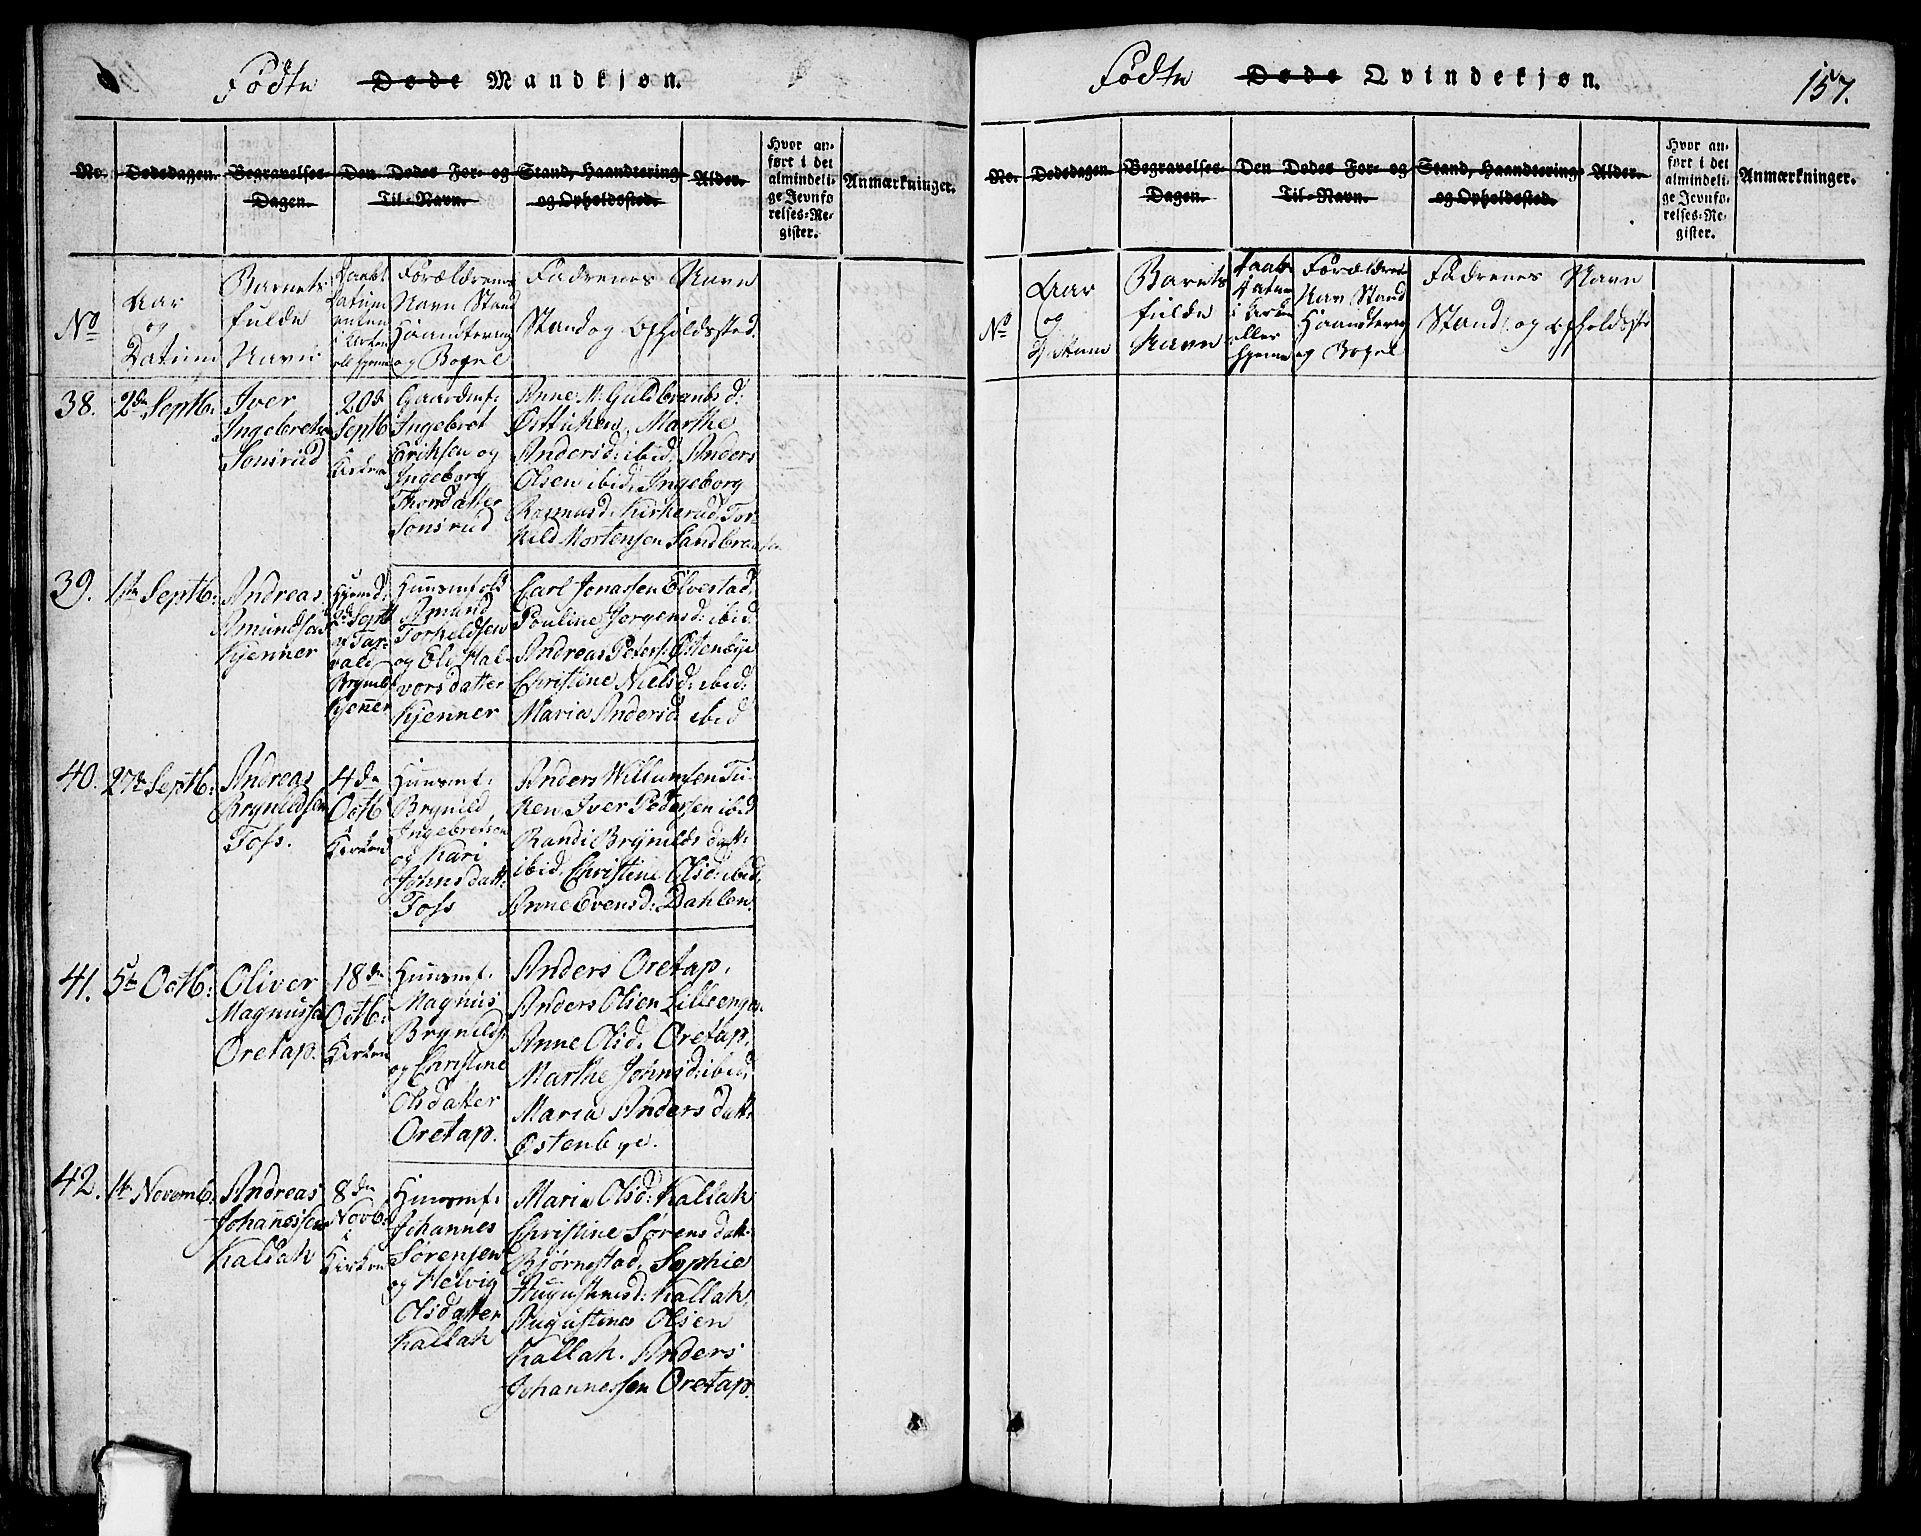 Fødte Døde Mandkjøn.
No. Dødsdagen. Begravelses-Dagen. Den Dødes For- og Til-Navn. Stand, Haandtering og Opholdssted. Alder. Hvor anført i det almindelige Jevnførelses-Register. Anmærkninger.
No Aar og Datum
Barnets fulde Navn
Daabs Datum enten i Kirken ell: hjemme
Forældrenes Navn Stand Haandtering og Bopel
Fadrenes Navn Stand og Opholdssted.
38. 2de Septb:
Iver
Ingebrets:
Sonsrud
20de
Septb
Kirken
Gaardmf:
Ingebret
Eriksen og
Ingeborg
Thordatter
Sonsrud
Anne M. Guldbrands d:
Marthe
Anders d: ibid, Anders
Olsen ibid, Ingeborg
Rasmusd. Kirkerud, Tor-
kild Mortensen Sandbrausen
39. 1te Septb:
Andreas
Amundsen
Kjenner
Hjemd:
6de Septb
af Tar-
vald
Brynilds
Kjenner
Huusmfolk
Amund
Torkildsen
og Eli Hal-
vorsdatter
Kjenner
Carl Jonassen Elvestad,
Pouline Jorgensd: ibid:
Andreas Peters: Østenbye
Christine Niels d: ibid:
Maria Andersd: ibid
40. 27de Septb:
Andreas
Brynildsen
Foss.
4de
Octb
Kirken
Huusmf:
Brynild
Ingebretsen
og Kari
Johnsdatt:
Foss
Anders Willumsen Fu-
ken Iver Pedersen ibid
Randi Brynilds datt:
ibid, Christine Olsd: ibid,
Anne Evensd: Dahlen.
41. 5te Octb:
Oliver
Magnussen
Oretap.
18de
Octb:
Kirken
Huusmf:
Magnus
Brynilds:
og Christine
Olsdatter
Oretap.
Anders Oretap,
Anders Olsen Lilleengen.
Anne Olsd, Oretap,
Marthe Johnsd: ibid,
Maria Anders datt:
Østenbye.
42. 1te Novemb:
Andreas
Johanessen
Kallak
8de
Novb:
Kirken
Huusmf:
Johannes
Sørensen
og Helvig
Olsdatter
Kallak
Maria Olsd: Kallak
Christine Sørens datt:
Bjørnestad, Sophie
Augustinsd: Kallak,
Augustines Olsen
Kallak. Anders
Johannessen Oretap.
Fødte Døde Qvindekjøn. 157.
No. Dødsdagen. Begravelses-Dagen. Den Dødes For- og Til-Navn. Stand, Haandtering og Opholdssted. Alder. Hvor anført i det almindelige Jevnførelses-Register. Anmærkninger.
No Aar og Datum
Barnets fulde Navn
Daabs Datum i Kirken eller hjemme
Forældrenes Navn Stand Haandtering og Bopel
Fadrenes Navn Stand og Opholdssted